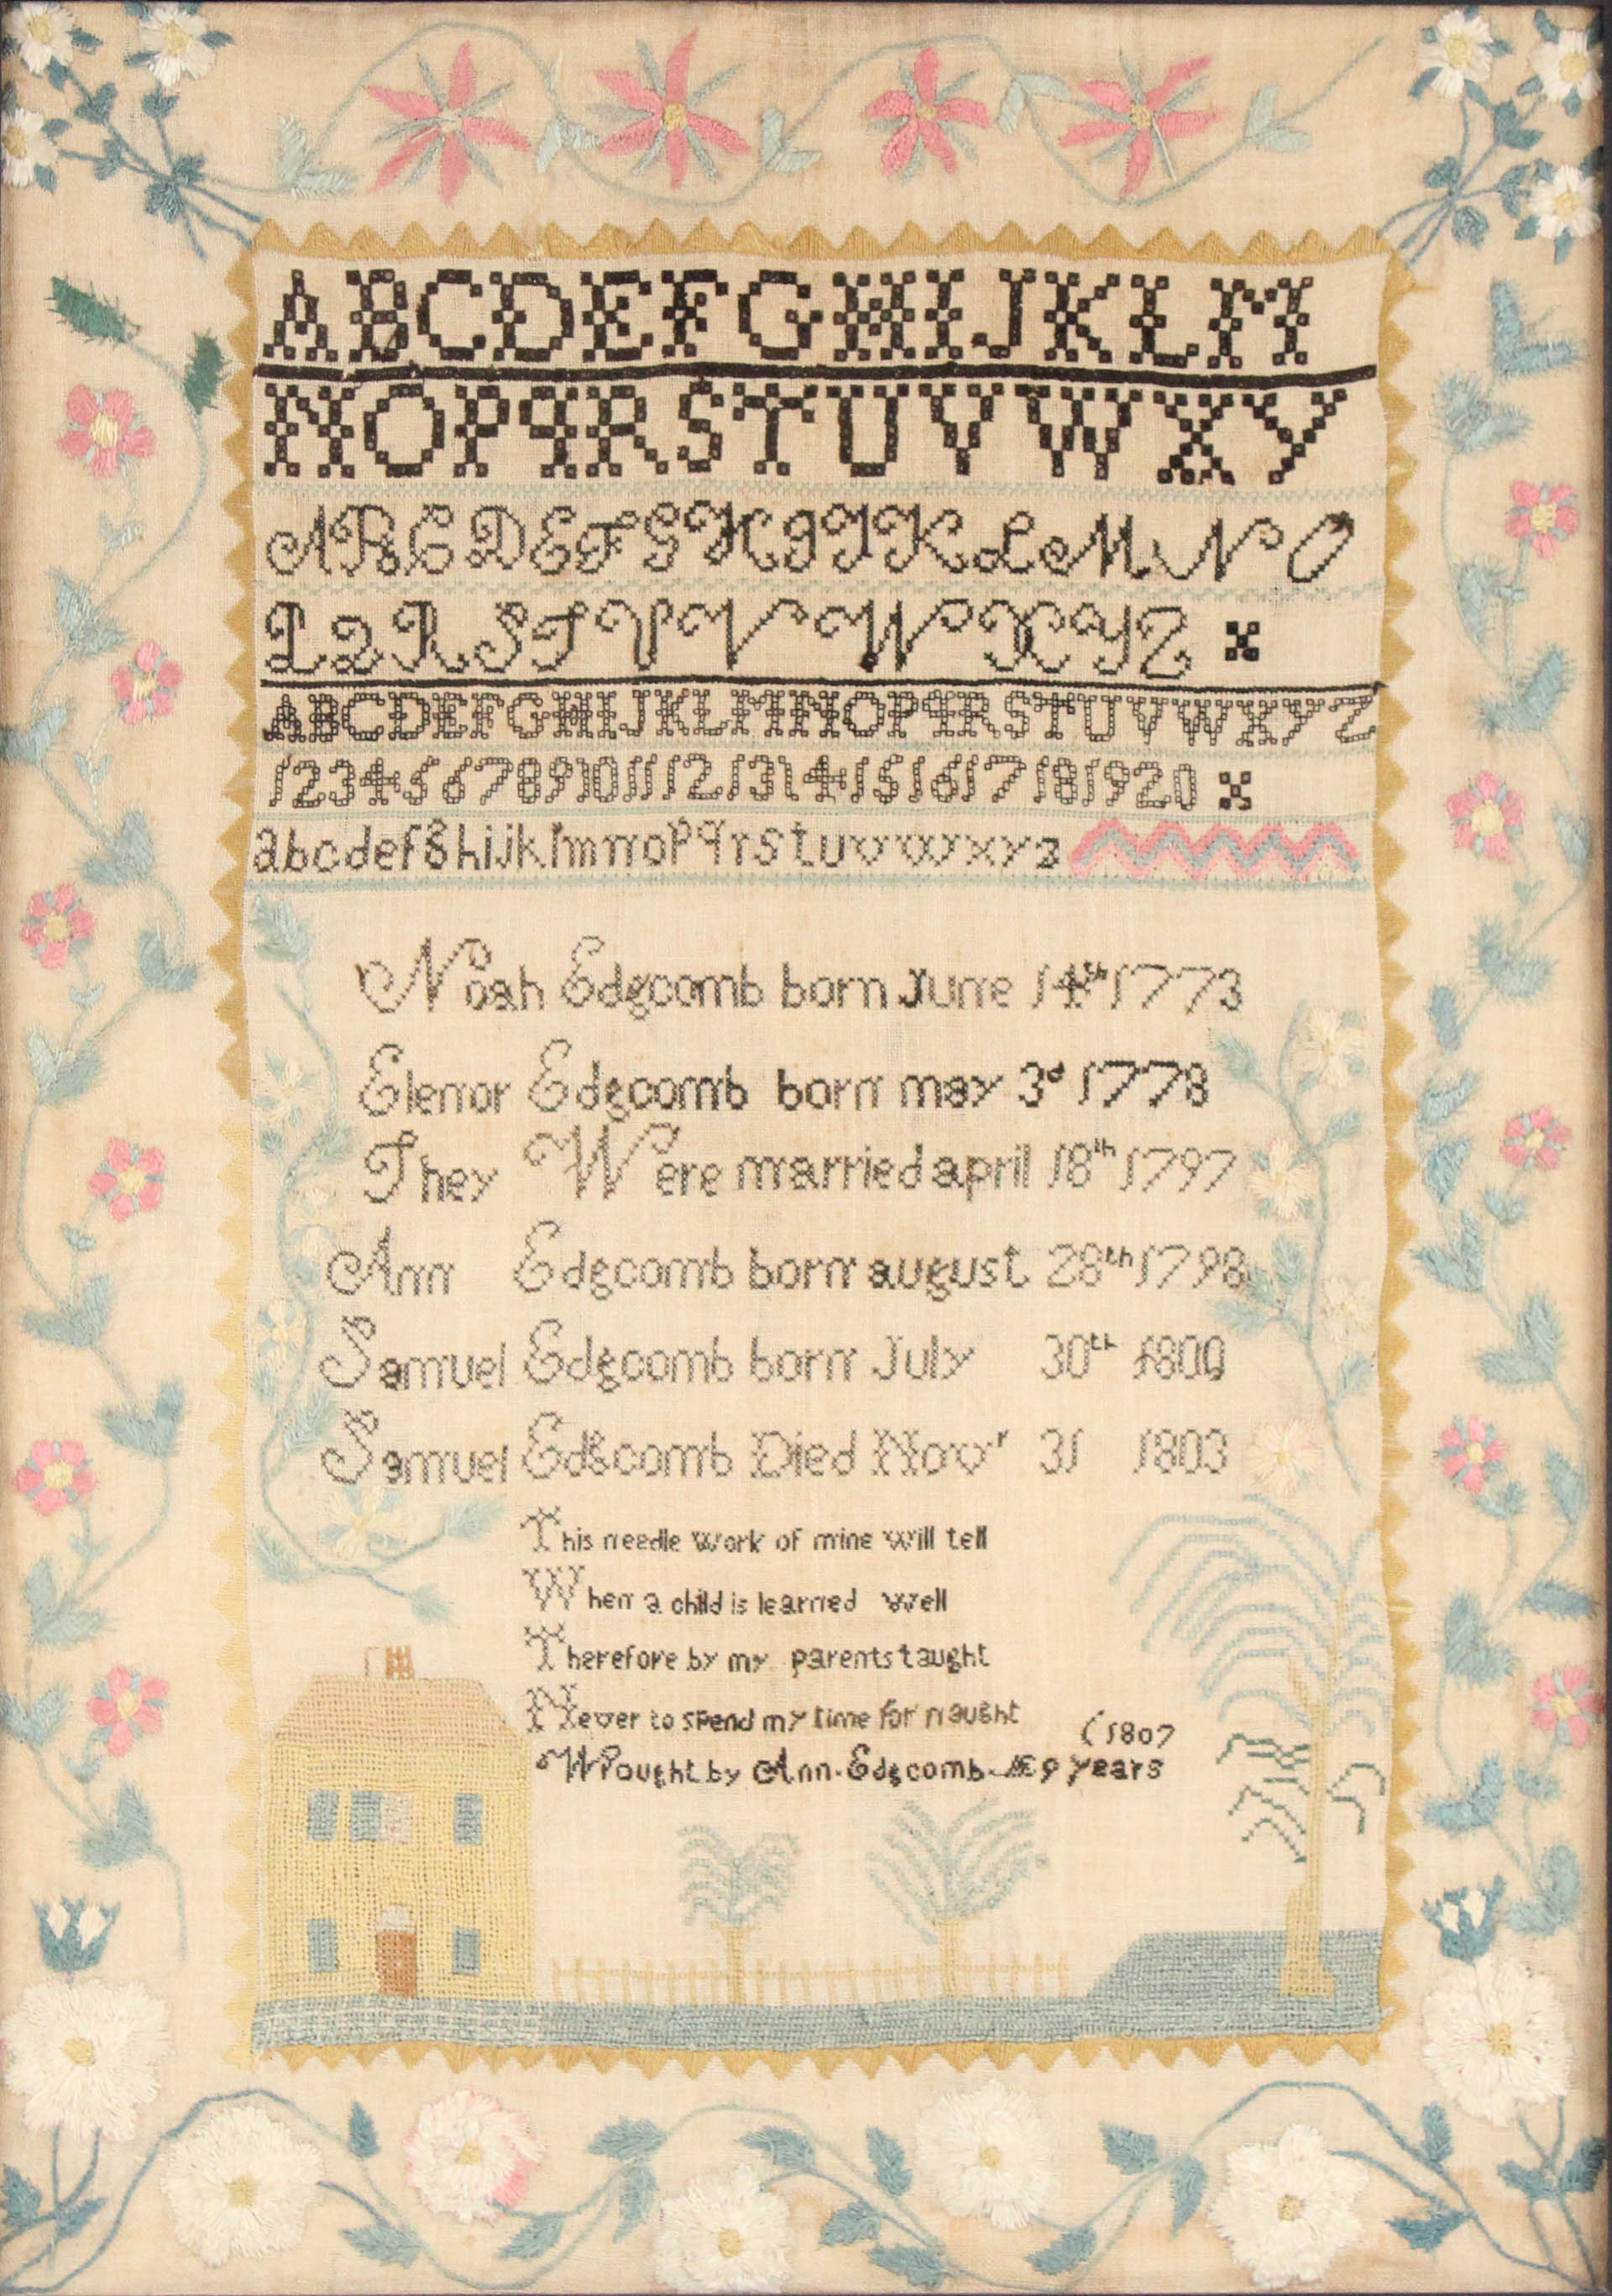 ABCDEFGHIJKLM
NOPQRSTUVWXY
ABCDEFGHIJKLMNO
PQRSTUVWXYZ
ABCDEFGHIJKLMNOPQRSTUVWXYZ
1 2 3 4 5 6 7 8 9 10 11 12 13 14 15 16 17 18 19 20
abcdefghijklmnopqrstuvwxyz
Noah Edgcomb born June 14th 1773
Elenor Edgcomb born may 3d 1778
They Were married april 18th 1797
Ann Edgcomb born august 28th 1798
Samuel Edgcomb born July 30th 1800
Samuel Edgcomb Died Novr 31 1803
This needle work of mine will tell
When a child is learned well
Therefore by my parents taught
Never to spend my time for naught
(1807
Wrought by Ann. Edgcomb. Æ 9 years